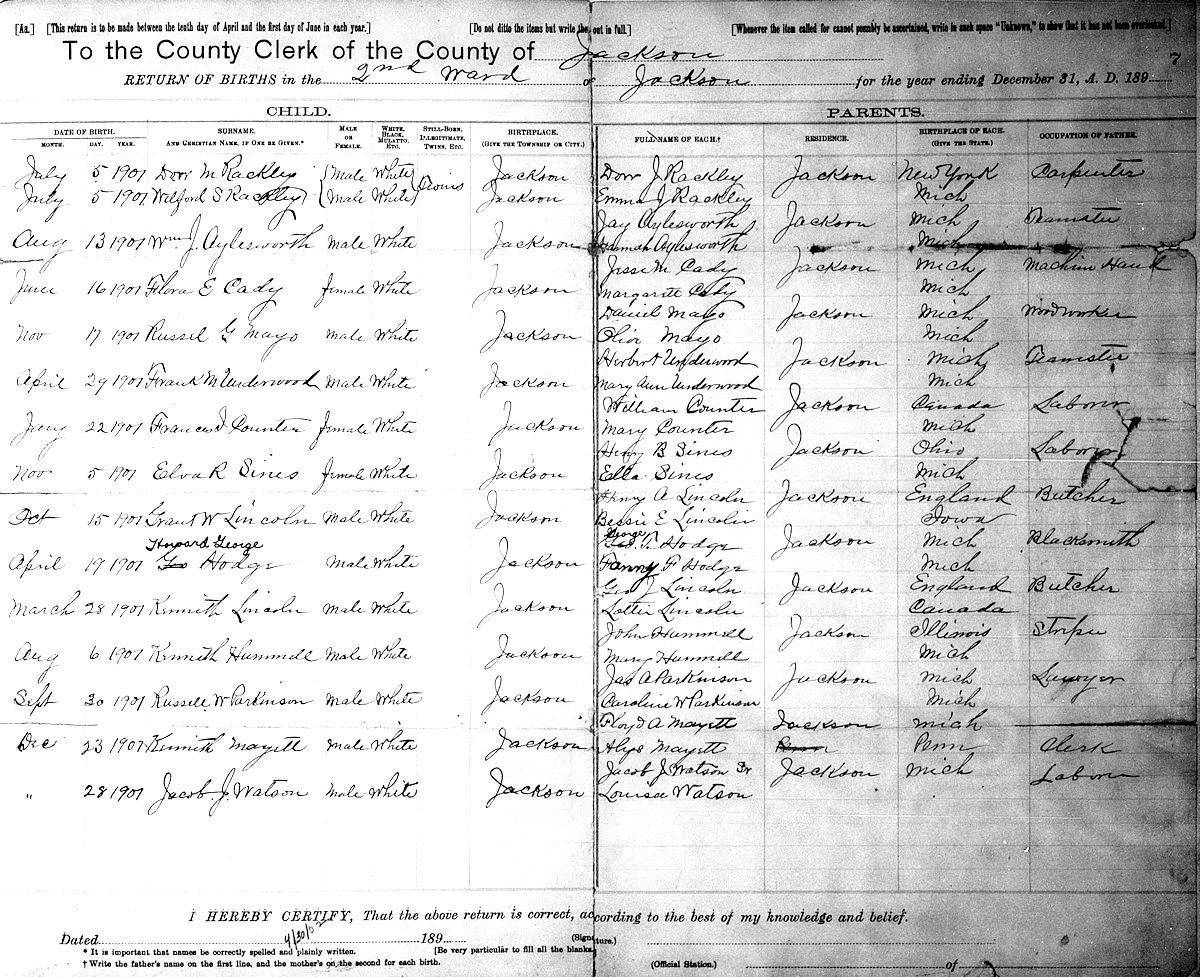 [Aa.] [This return is to be made between the tenth day of April and the first day of June in each year.] [Do not ditto the items but write them out in full.] [Whenever the item called for cannot possibly be ascertained, write in such space "Unknown," to show that it has not been overlooked.]
To the County Clerk of the County of Jackson
7
RETURN OF BIRTHS in the 2nd Ward of Jackson for the year ending December 31, A. D. 189
CHILD. PARENTS.
DATE OF BIRTH. MONTH. DAY. YEAR. SURNAME. AND CHRISTIAN NAME, IF ONE BE GIVEN.* MALE OR FEMALE. WHITE, BLACK, MULATTO, ETC. STILL-BORN, ILLEGITIMATE, TWINS, ETC. BIRTHPLACE. (GIVE THE TOWNSHIP OR CITY.) FULL NAME OF EACH.† RESIDENCE. BIRTHPLACE OF EACH. (GIVE THE STATE.) OCCUPATION OF FATHER.
July 5 1901 Dorr M Rackley Male White Twins Jackson Dorr J Rackley Jackson New York Carpenter
July 5 1901 Wilford S Rackley Male White Jackson Emma J Rackley Mich
Jay Aylesworth Jackson Mich Teamster
Aug 13 1901 Wm J. Aylesworth Male White Jackson Hannah Aylesworth Mich
Jesse M Cady Jackson Mich Machine Hand
June 16 1901 Flora E Cady female White Jackson Margarett Cady Mich
Daniel Mayo Jackson Mich Woodworker
Nov 17 1901 Russel G Mayo male White Jackson Mayo Mich
Herbert Underwood Jackson Mich Teamster
April 29 1901 Frank M Underwood Male White Jackson Mary Ann Underwood Mich
William Counter Jackson Canada Laborer
22 1901 Frances I Counter female White Jackson Mary Counter Mich
Henry B Sines Jackson Ohio Laborer
Nov 5 1901 Elva R Sines female White Jackson Ella Sines Mich
Henry A Lincoln Jackson England Butcher
Oct 15 1901 Grant W Lincoln Male White Jackson Bessie E Lincoln Iowa
Howard George George
Geo. T. Hodge Jackson Mich Blacksmith
April 19 1901 Geo Hodge Male White Jackson Fanny F Hodge Mich
Geo J Lincoln Jackson England Butcher
March 28 1901 Kenneth Lincoln Male White Jackson Lottie Lincoln Canada
John Hummell Jackson Illinois
Aug 6 1901 Kenneth Hummell Male White Jackson Mary Hummell Mich
Jas A Parkinson Jackson Mich Lawyer
Sept 30 1901 Russell W Parkinson Male White Jackson Caroline W Parkinson Mich
Floyd A Mayett Jackson Mich
Dec 23 1901 Kenneth Mayett Male White Jackson Alys Mayett Penn Clerk
Jacob J Watson Sr Jackson Mich Laborer
" 28 1901 Jacob J. Watson Male White Jackson Louisa Watson
I HEREBY CERTIFY, That the above return is correct, according to the best of my knowledge and belief.
Dated 189 (Signature.)
* It is important that names be correctly spelled and plainly written. [Be very particular to fill all the blanks.
† Write the father's name on the first line, and the mother's on the second for each birth. (Official Station.) of